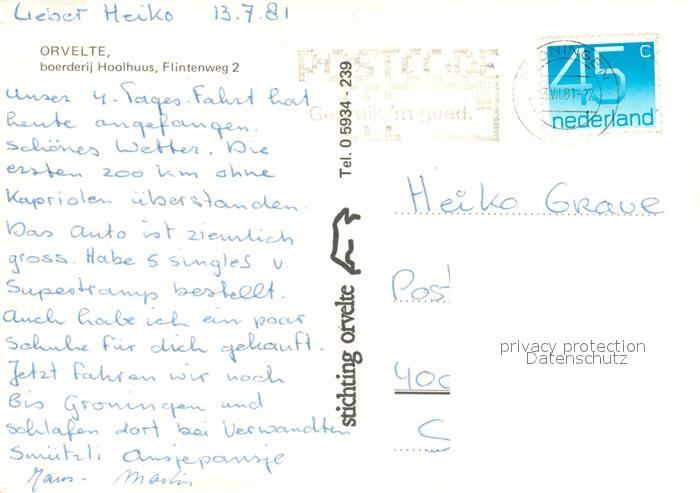 Lieber Heiko 13.7.81
ORVELTE,
boerderij Hoolhuus, Flintenweg 2
Unser 4. Tages-Fahrt hat
heute angefangen.
Schönes Wetter. Die
ersten 200 km ohne
Kapriolen überstanden.
Das Auto ist ziemlich
gross. Habe 5 singles v.
Supertramp bestellt.
Auch habe ich ein paar
Schuhe für dich gekauft.
Jetzt fahren wir noch
Bis Groningen und
schlafen dort bei Verwandten
Smützli Ansjepansje
Martin
stichting orvelte Tel. 0 5934 - 239
POSTCODE
Gebruik 'm goed.
GRONINGEN
45 c
nederland
Heiko Graue
Post
400
privacy protection
Datenschutz